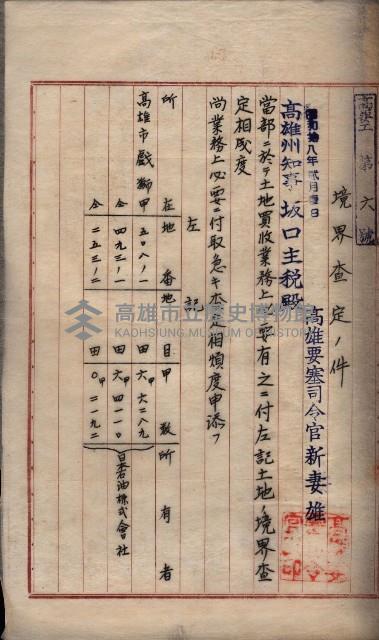 高要工第六號
境界査定ノ件
昭和拾八年貳月壹日
高雄要塞司令官新妻雄
高雄州知事坂口主税殿
當部ニ於テ土地買收業務上必要有之ニ付左記土地ノ境界査
定相成度
尚業務上必要ニ付取急キ査定相煩度申添フ
左記
所在地番地目甲數所有者
高雄市戲獅甲五〇八ノ一田六甲六二八九
仝四九三ノ一田六甲四一一〇日本石油株式會社
仝二五三ノ二田〇甲二一九二
高雄市立歷史博物館
KAOHSIUNG MUSEUM OF HISTORY